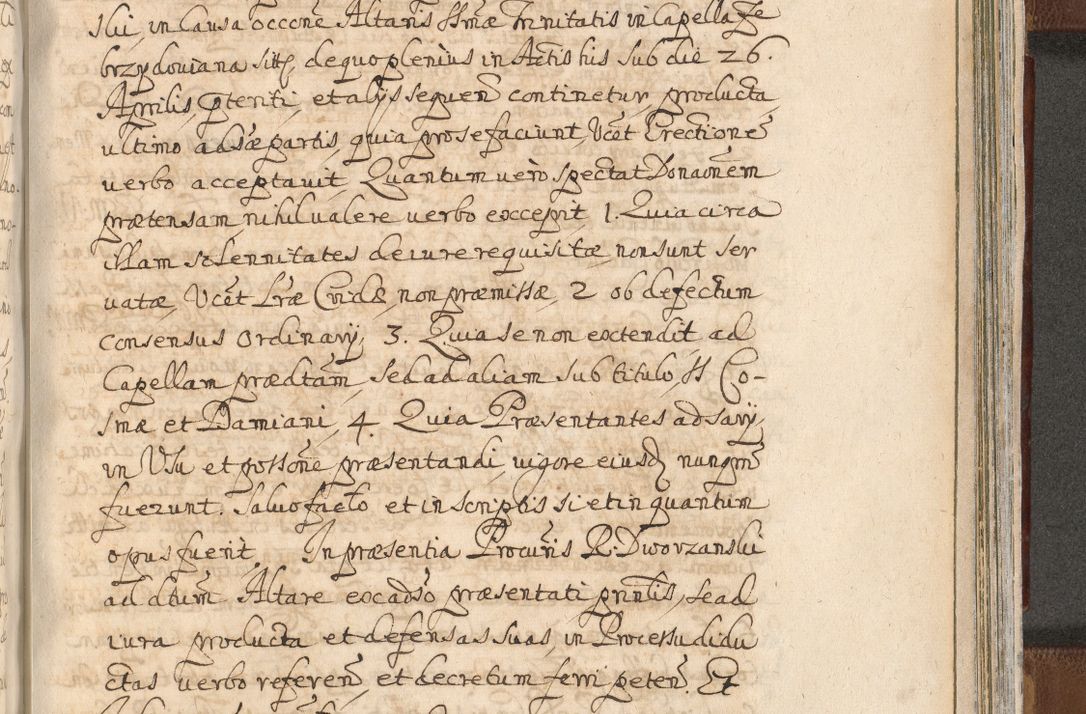 slii, in Causa occõne Altaris SSmæ Trinitatis in Capella Ze
brzydoviana sitt, de quo plenius in Actis his sub die 26.
Aprilis, p̃teriti, et alijs sequeñ continetur, producta
ultimo adsæ partis, quia pro se faciunt, Ucẽt Erectionẽ
verbo acceptavit, Quantum verò spectat Donaõnem
prætensam, nihil valere verbo excepit, 1. Quia circa
illam solennitates de iure requisitæ, non sunt ser
vatæ, Ucẽt Lræ Cridæ, non præmissæ, 2 ob defectum
consensus Ordinarij, 3. Quia se non extendit ad
Capellam prædtãm, sed ad aliam sub titulo SS Co-
smæ et Damiani, 4. Quia Præsentantes adsarij,
in Usu et possõne præsentandi, vigore eiusd, nunqm̃
fuerunt. Salvo facto et in scriptis si et in quantum
opus fuerit. In præsentia Procurîs R. Dworzanslii
ad dtum̃ Altare ex adsõ præsentati prñtis, se ad
iura producta et defensas suas, in Processu didu
ctas verbo refereñ, et decretum ferri peteñ. Et